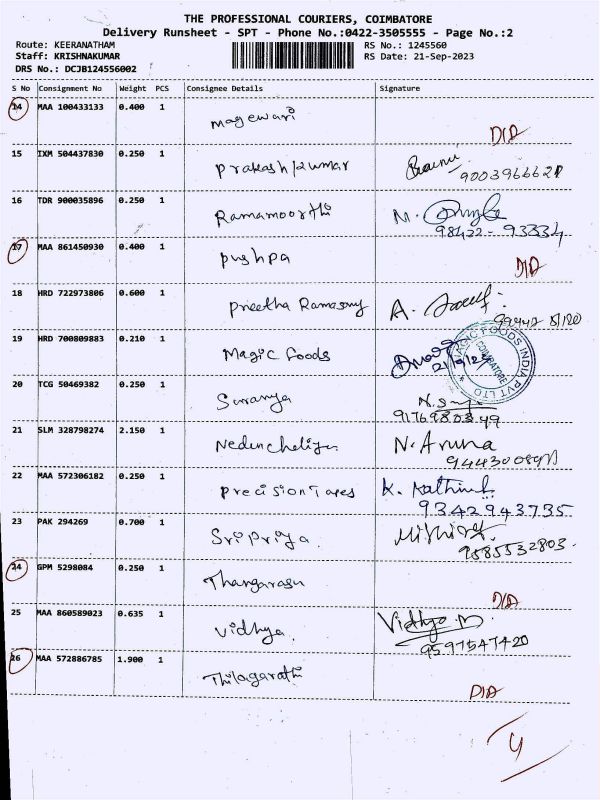 THE PROFESSIONAL COURIERS, COIMBATORE
Delivery Runsheet - SPT - Phone No.:0422-3505555 - Page No.:2
Route: KEERANATHAM RS No.: 1245560
Staff: KRISHNAKUMAR RS Date: 21-Sep-2023
DRS No.: DCJB124556002
S No Consignment No Weight PCS Consignee Details Signature
14 MAA 100433133 0.400 1 Mageswari
15 IXM 504437830 0.250 1 Prakash kumar
16 TDR 900035896 0.250 1 Ramamoorthi
98422-93334
17 MAA 861450930 0.400 1 Pushpa
18 HRD 722973806 0.600 1 Preetha Ramasamy A.
19 HRD 700809883 0.210 1 Magic Foods
MAGIC FOODS INDIA PVT LTD
COIMBATORE
20 TCG 50469382 0.250 1 Suranya
9176980349
21 SLM 328798274 2.150 1 N. Aruna
22 MAA 572306182 0.250 1 Precision Tapes K.
9342943735
23 PAK 294269 0.700 1 Sri Priya.
9585532803.
24 GPM 5298084 0.250 1 Thangarasu
25 MAA 860589023 0.635 1 Vidhya. Vidhya
9597547420
26 MAA 572886785 1.900 1 Thilagarathi
4